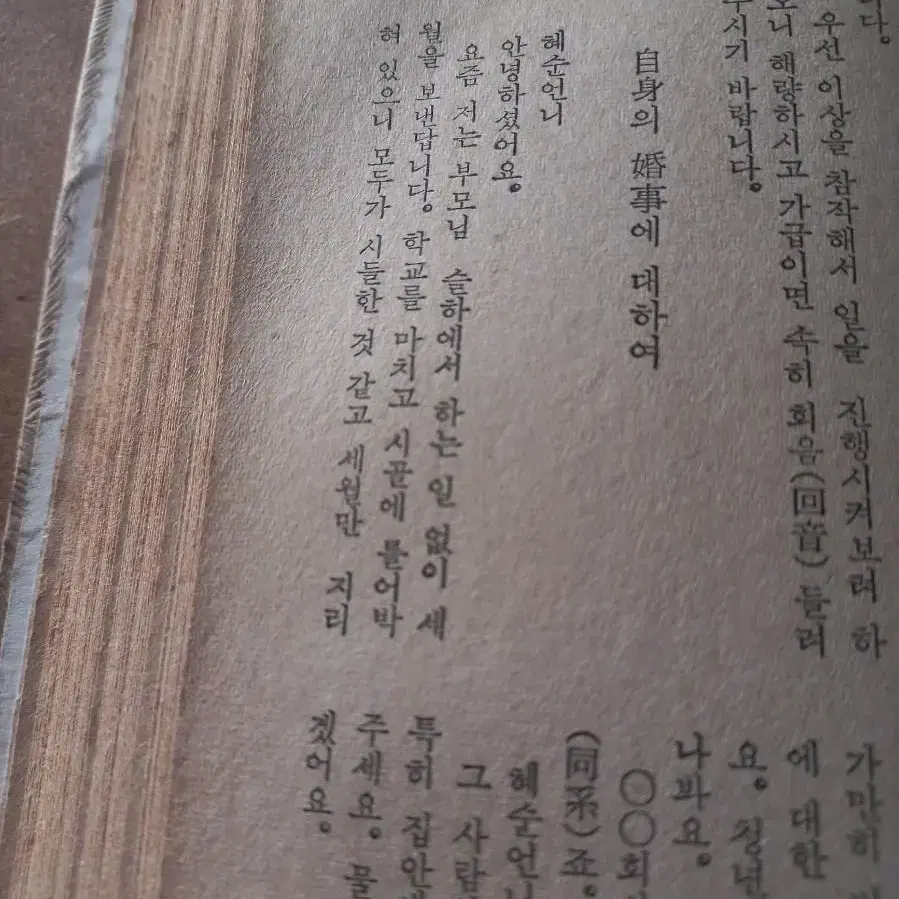 니다.
우선 이상을 참작해서 일을 진행시켜보려 하
오니 해량하시고 가급이면 속히 회음(回音) 들려
주시기 바랍니다.
自身의 婚事에 대하여
혜순언니
안녕하셨어요.
요즘 저는 부모님 슬하에서 하는 일 없이 세
월을 보낸답니다. 학교를 마치고 시골에 틀어박
혀 있으니 모두가 시들한 것 같고 세월만 지리
가만히
에 대한
요. 청년
나봐요.
〇〇회
(同系)죠.
혜순언니
그 사람
특히 집안
주세요. 물
겠어요.